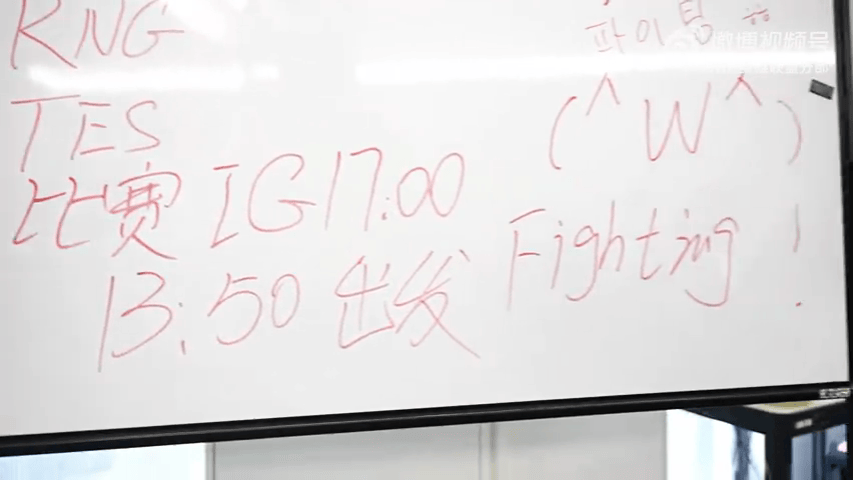 RNG
TES
比赛 IG 17:00
13:50 出发
파이팅
(^W^)
Fighting!
微博视频号